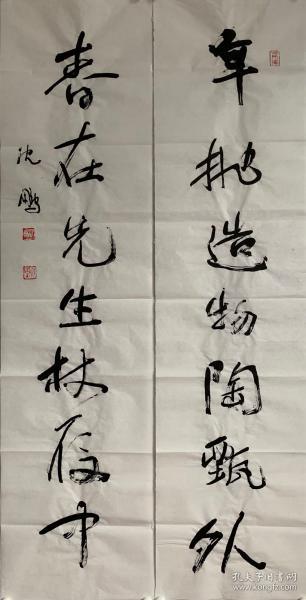 身抛造物陶甄外
春在先生杖履中
沈鹏
孔夫子旧书网